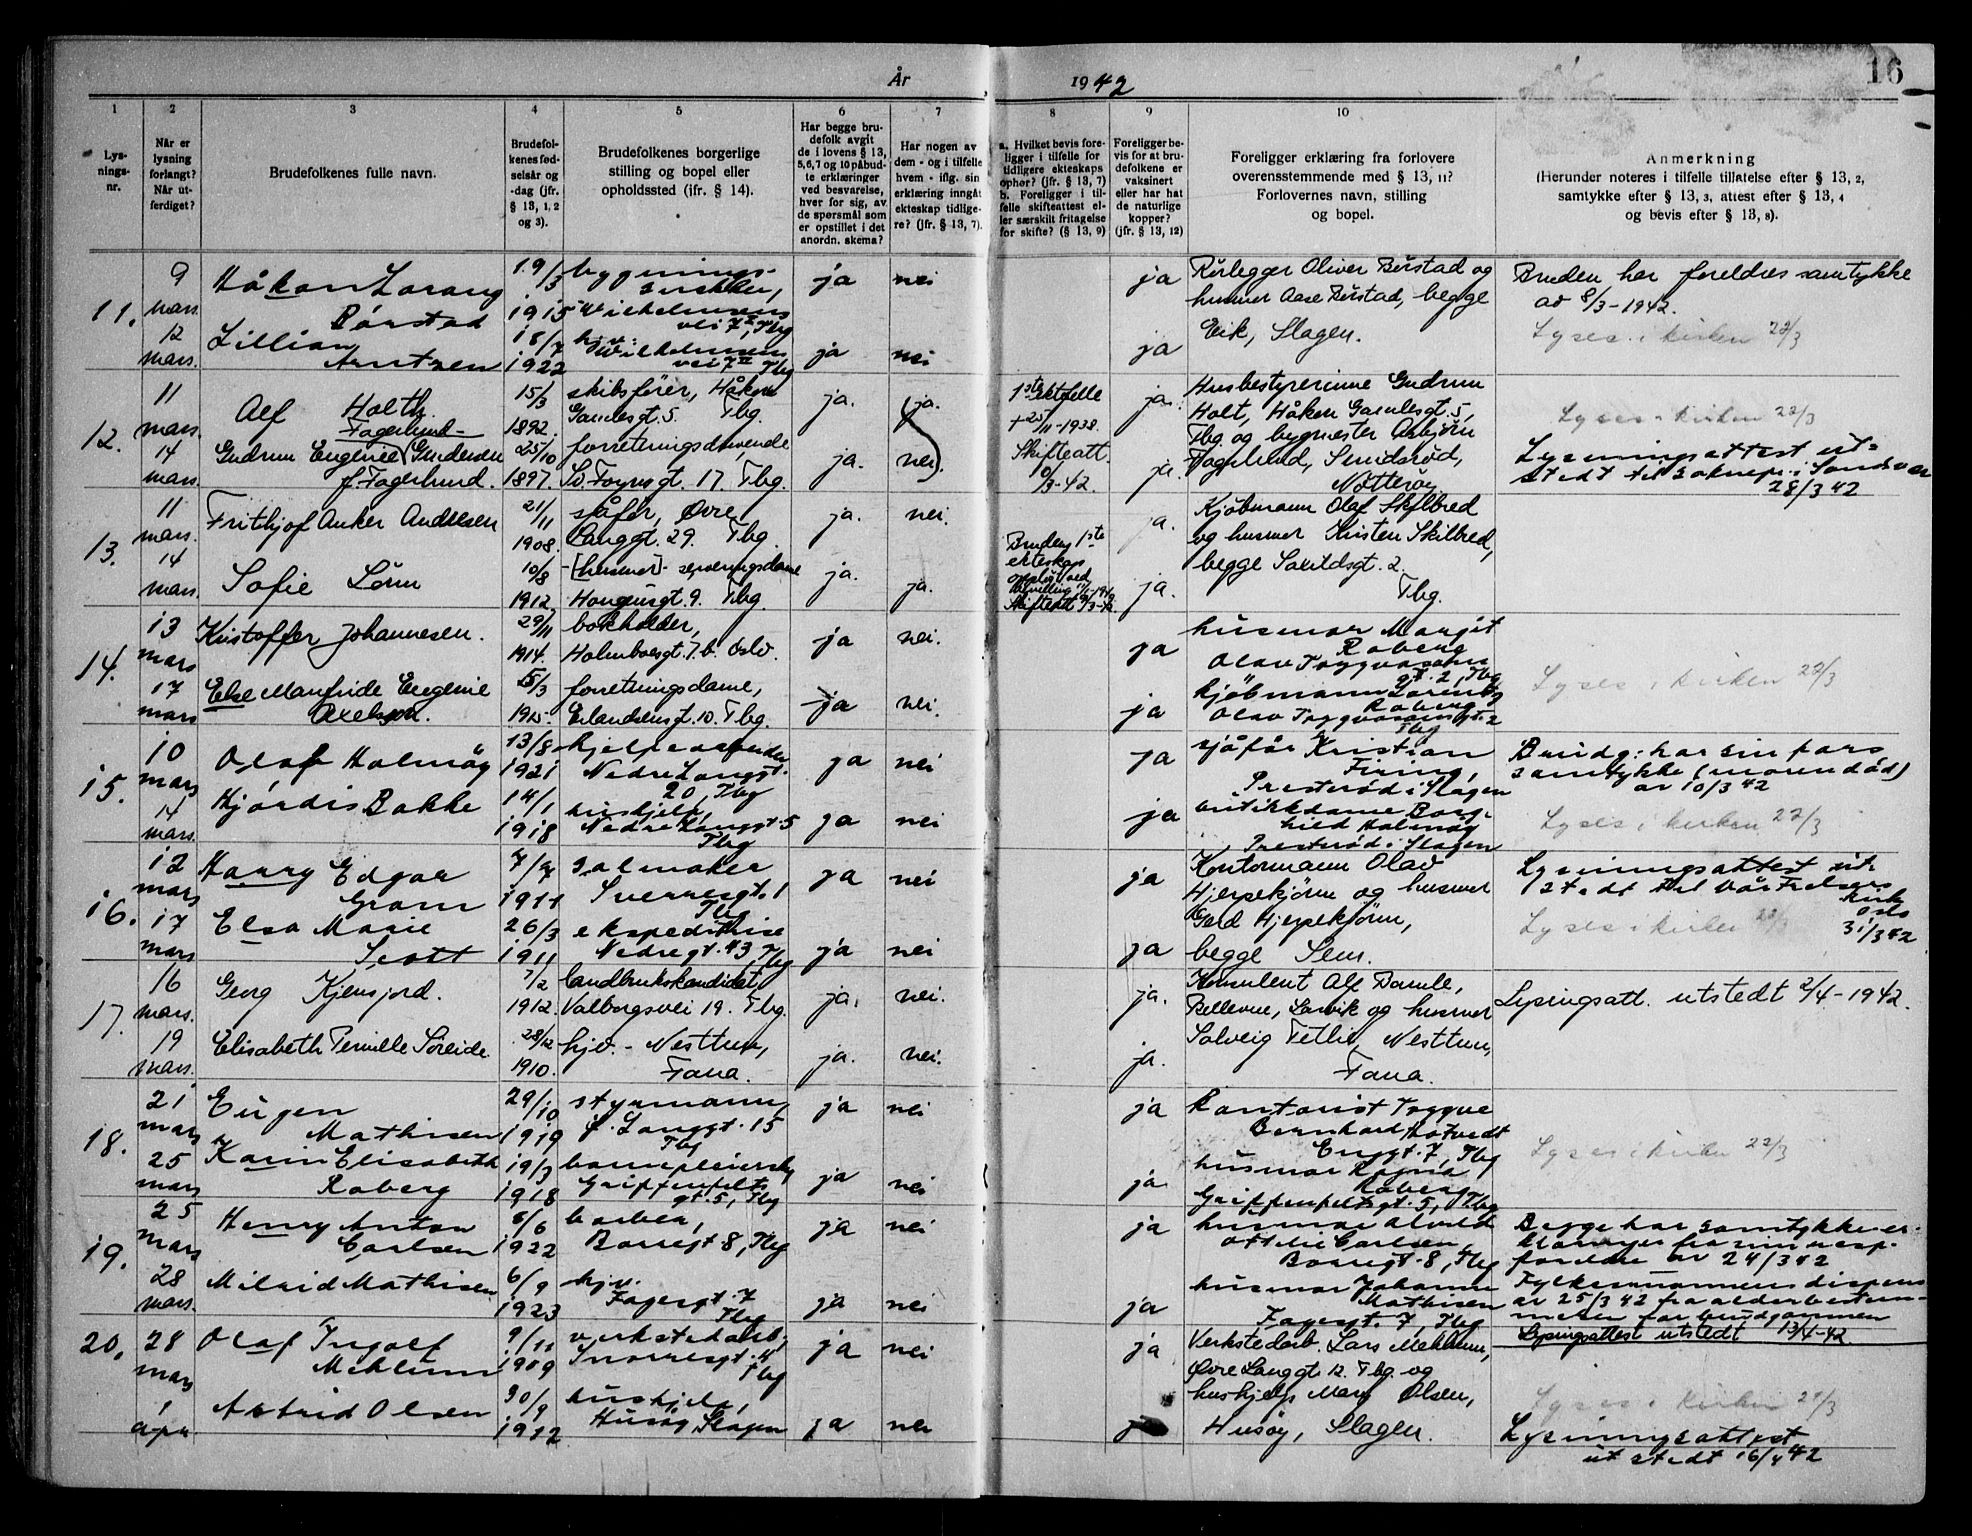 År 1942
16
1 2 3 4 5 6 7 8 9 10
Lysnings-nr.
Når er lysning forlangt? Når utferdiget?
Brudefolkenes fulle navn.
Brudefolkenes fødselsår og -dag (jfr. § 13, 1, 2 og 3).
Brudefolkenes borgerlige stilling og bopel eller opholdssted (ifr. § 14).
Har begge brudefolk avgit de i lovens § 13, 5,6,7 og 10 påbudte erklæringer ved besvarelse, hver for sig, av de spørsmål som er opstillet i det anordn. skema?
Har nogen av dem - og i tilfelle hvem - iflg. sin erklæring inngått ekteskap tidligere? (jfr. § 13, 7).
a. Hvilket bevis foreligger i tilfelle for tidligere ekteskaps ophør? (jfr. § 13, 7) b. Foreligger i tilfelle skifteattest eller særskilt fritagelse for skifte? (§ 13, 9)
Foreligger bevis for at brudefolkene er vaksinert eller har hat de naturlige kopper? (jfr. § 13, 12)
Foreligger erklæring fra forlovere overensstemmende med § 13, 11? Forlovernes navn, stilling og bopel.
Anmerkning (Herunder noteres i tilfelle tillatelse efter § 13, 2, samtykke efter § 13, 3, attest efter § 13, 4 og bevis efter § 13, 8).
11. 9 mars 12 mars.
Håkon Lorang Børstad 19/3 1915 bygningssnekker, Wilhelmsens vei 7 II, Tbg ja nei
Lillian Arntzen 18/7 1922 hjv. Wilhelmsens vei 7 II Tbg ja nei
ja Rørlegger Oliver Børstad og
husmor Aase Børstad, begge
ja Eik, Slagen.
Bruden har foreldres samtykke
av 8/3-1942.
Lyses i kirken 22/3
12. 11 mars. 14 mars.
Alf Holth 15/3 1892. skibsfører, Håkon Gamlesgt. 5. Tbg. ja. ja.
Fagerlund
Gudrun Eugenie Gundersen f. Fagerlund. 25/10 1897. forretningsdrivende Sv. Foynsgt. 17. Tbg. ja. nei
1ste ektfelle
+ 25/11-1938.
Skifteatt.
/3-42.
ja. Husbestyrerinne Gudrun
Holt, Håkon Gamlesgt. 5,
Tbg. og bygmester Asbjørn
ja. Fagerlund, Smidsrød,
Nøtterøy
Lyses i kirken 22/3
Lysningsattest ut-
stedt til sokнepr. i Sandar
28/3 42
13. 11 mars. 14 mars.
Frithjof Anker Andresen 21/11 1908. sjåfør, Øvre Langgt. 29. Tbg. ja. nei.
Sofie Lønn 10/8 1912. [husmor] serveringsdame Haugesgt. 9. Tbg. ja. ja.
Brudens 1ste
ekteskap
opløst ved
Skifteatt 9/3-42.
ja. Kjøbmann Olaf Skilbred
og husmor Kirsten Skilbred,
ja. begge Svend
Tbg.
14. 13 mars 17 mars
Kristoffer Johannesen. 29/11 1914. bokholder, Holmboesgt. 7. b. Oslo. ja nei.
Else Manfride Eugenie Axelsen. 5/3 1915. forretningsdame, Erlandsensgt. 10. Tbg. ja nei.
ja husmor Margit
Roberg
Olav Trygvasons
gt. 2, Tbg
ja kjøbmann Lorentz
Roberg
Olav Trygvasonsgt. 2
Tbg
Lyses i kirken 22/3
15. 10 mars 14 mars.
Olaf Holmøy 13/8 1921 hjelpearbeider Nedre Langgt. 20, Tbg ja nei
Hjørdis Bakke 14/1 1918 hushjelp, Nedre Langgt. 5 Tbg ja nei
ja sjåfør Kristian
Firing,
Presterød i Slagen
ja butikkdame Borg-
hild Holmøy
Presterød i Slagen
Brudg. har sin fars
samtykke (moren død)
av 10/3 42
Lyses i kirken 22/3
16. 12 mars 17 mars
Harry Edgar Gram 1911 salmaker Sverresgt. 1 Tbg ja nei
Elsa Marie Scott 26/3 1911 ekspeditrise Nedregt. 43, Tbg ja nei
ja Kontormann Olav
Hjerpekjønn og husmor
Gerd Hjerpekjønn,
ja begge Sem.
Lysningsattest ut-
stedt til Vår Frelsers
Kirke
Oslo
31/3 42
Lyses i kirken 22/3
17. 16 mars. 19 mars.
Georg Kjensjord. 7/2 1912. landbrukskandidat, Valborgsvei 19. Tbg. ja. nei.
Elisabeth Pernille Søreide 28/12 1910. hjv. - Nesttun, Fana. ja. nei.
ja. Konsulent Alf Damle,
Bellevue, Larvik og husmor
Solveig Tetlie, Nesttun,
ja. Fana.
Lysningsatt. utstedt 2/4-1942.
18. 21 mars 25 mars
Eugen Mathisen 29/10 1919 styrmann, Ø. Langgt. 15 Tbg ja nei
Karin Elisabeth Roberg 19/3 1918 barnepleierske Griffenfelts gt. 5, Tbg ja nei
ja kontorist Tryggve
Bernhard Hotvedt
Enggt. 7, Tbg
ja. husmor Ragna
Roberg
Griffenfeltsgt. 5, Tbg
Lyses i kirken 22/3
19. 25 mars 28 mars.
Henry Anton Carlsen 6/6 1922 barber, Borregt 8, Tbg ja nei
Milrid Mathisen 6/9 1923 hjv. Fayesgt. 7 Tbg ja nei
ja husmor Alvild
Ottilie Carlsen
Borregt. 8, Tbg
ja husmor Johanne
Mathisen
Fayesgt. 7, Tbg
Begge har samtykke-er-
klæringer fra sine resp.
foreldre av 24/3 42
Fylkesmannens dispens
av 25/3 42 fra aldersbestem-
melsen for brudgommen
Lysingsattest utstedt 13/4-42.
20. 28 mars 1 apr.
Olaf Ingolf Mehlum 9/11 1909 verkstedarb. Snorresgt. 4 Tbg ja nei
Astrid Olsen 30/9 1912 hushjelp, Husøy, Slagen ja nei
ja Verkstedarb. Lars Mehlum,
Øvre Langgt 12. Tbg. og
hushjelp Mary Olsen,
ja Husøy, Slagen.
Lyses i kirken 29/3
Lysningsattest
utstedt 16/4 42